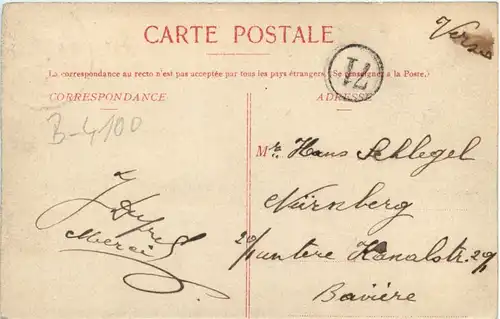 CARTE POSTALE
La correspondance au recto n'est pas acceptée par tous les pays étrangers. (Se renseigner à la Poste.)
CORRESPONDANCE
ADRESSE
71
B-4100
Mr Hans Schlegel
Nürnberg
untere Kanalstr. 29/I
Bavière
Merci